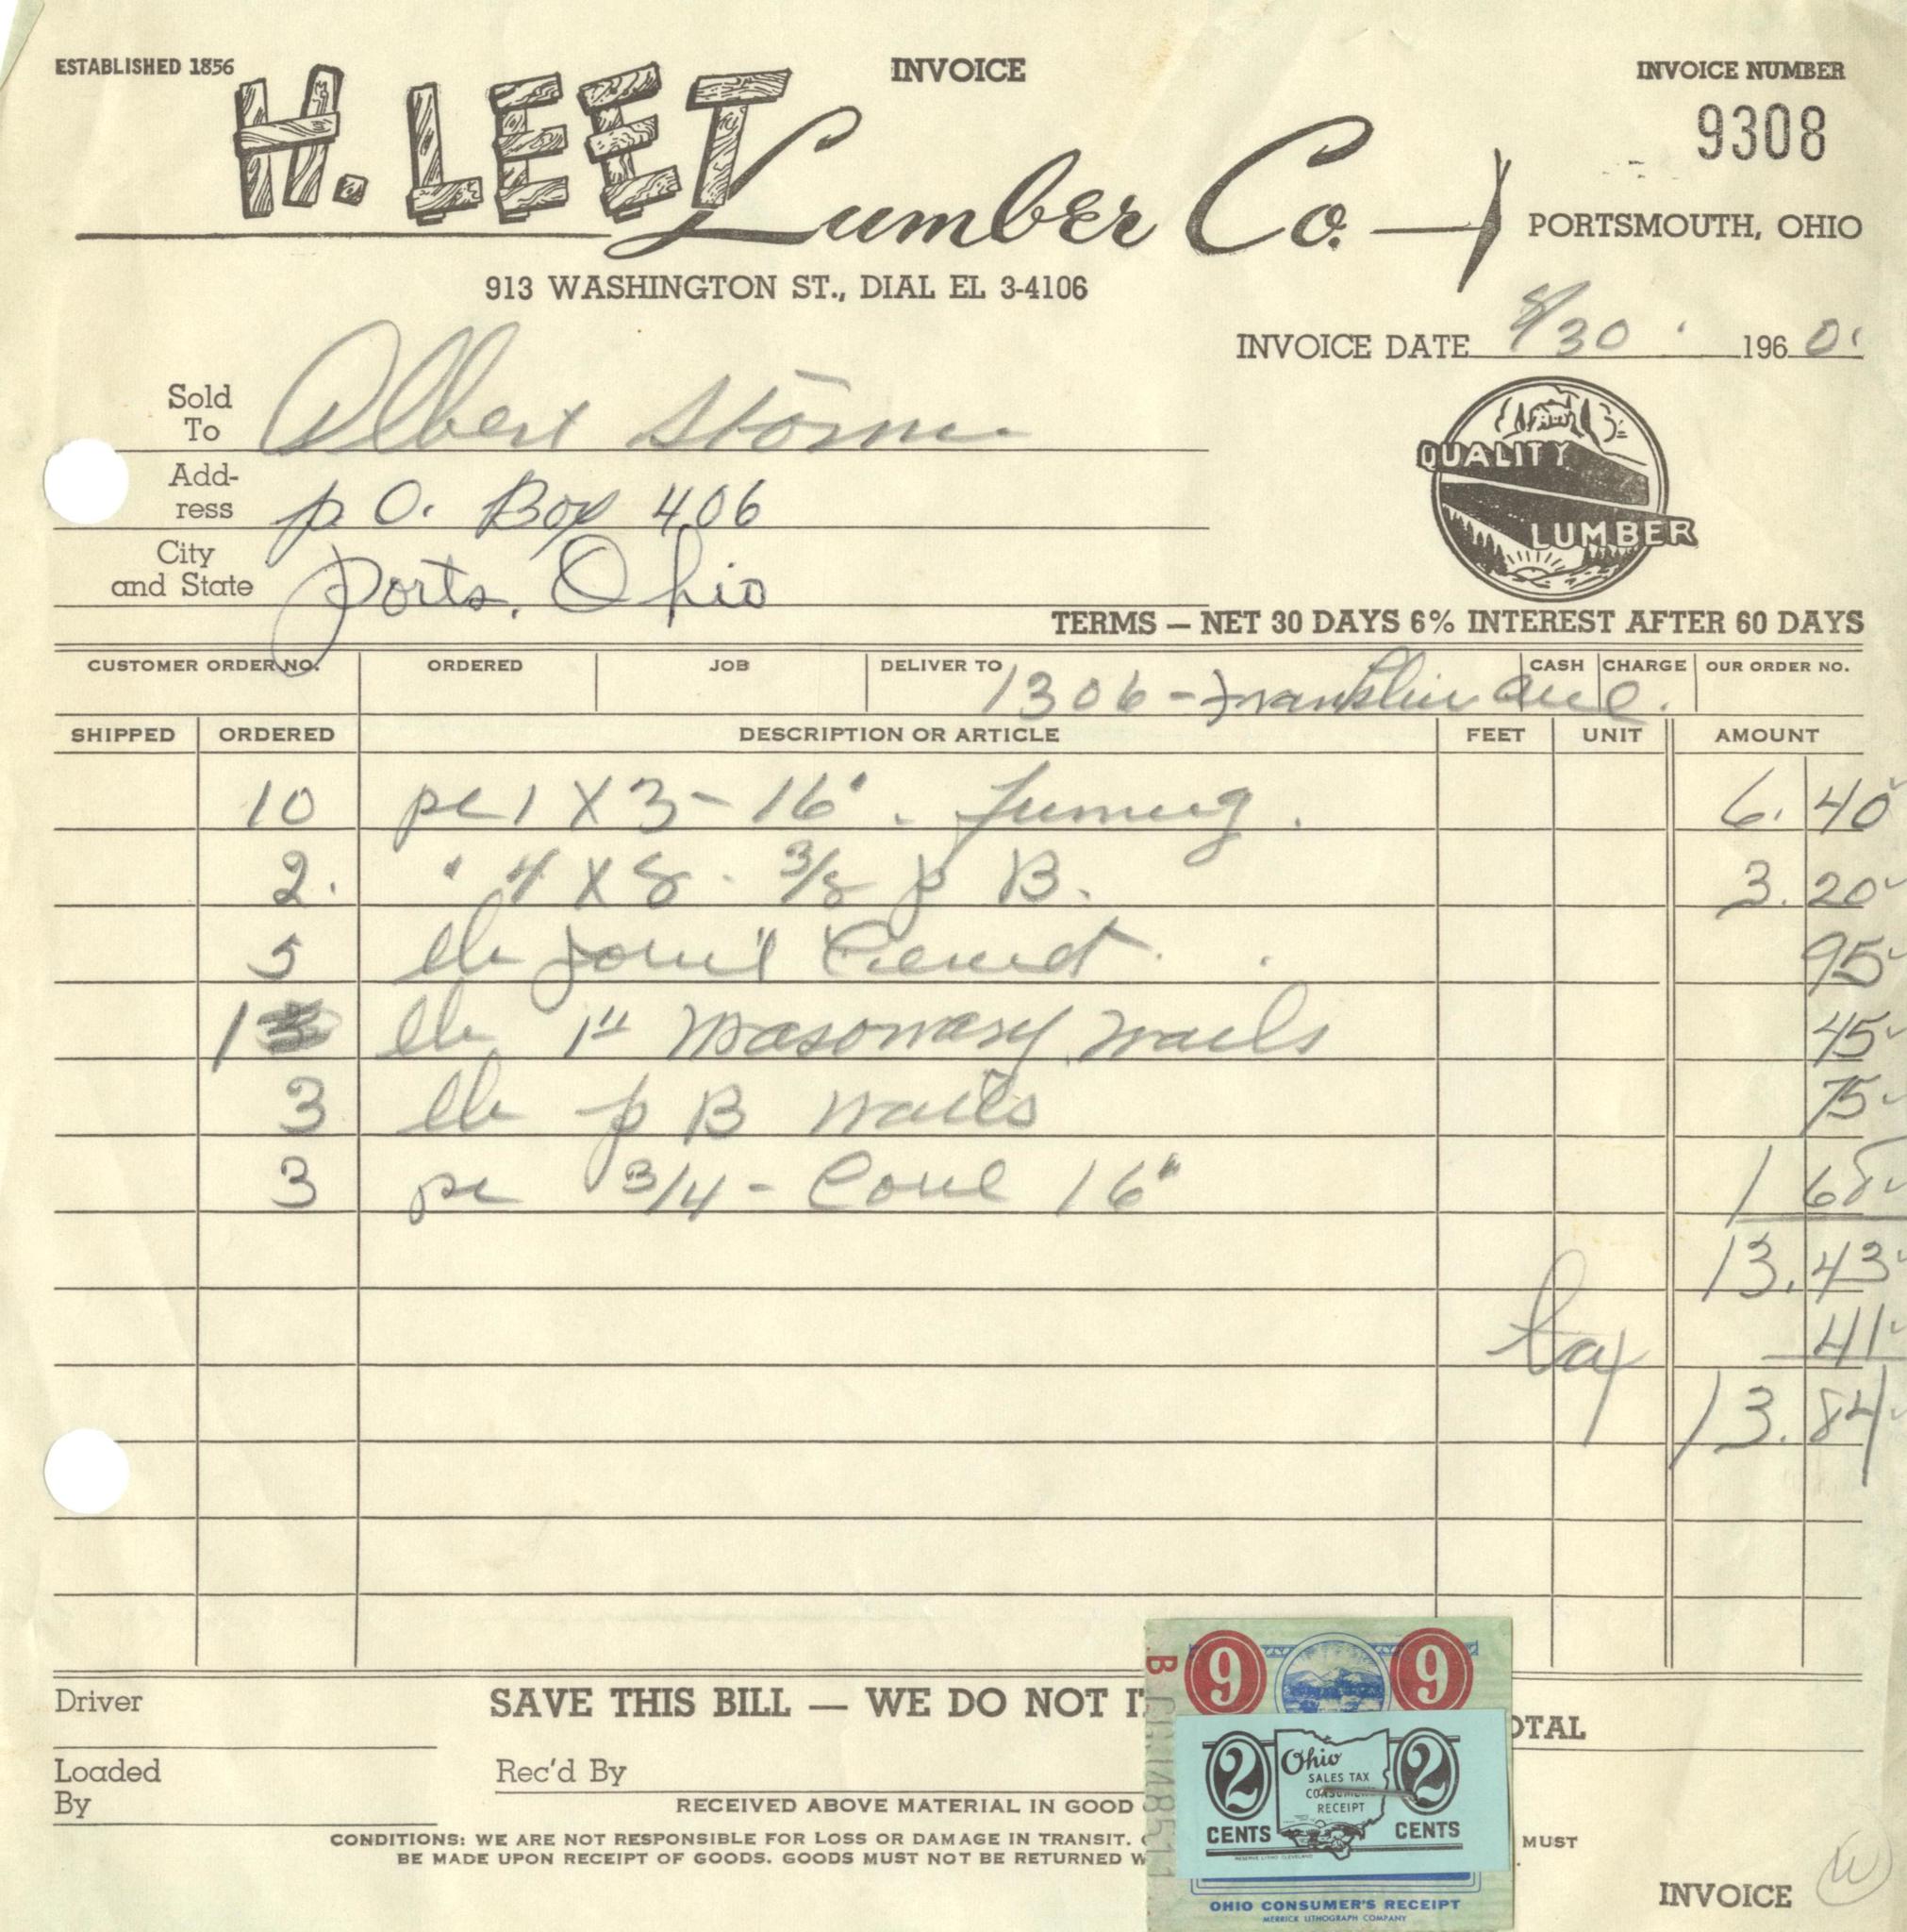 ESTABLISHED 1856
INVOICE
INVOICE NUMBER
9308
H. LEET Lumber Co.
PORTSMOUTH, OHIO
913 WASHINGTON ST., DIAL EL 3-4106
INVOICE DATE 8/30 1960
Sold To Albert Storm
Address P.O. Box 406
City and State Ports, Ohio
QUALITY
LUMBER
TERMS — NET 30 DAYS 6% INTEREST AFTER 60 DAYS
CUSTOMER ORDER NO. ORDERED JOB DELIVER TO 1306 - Franklin Ave. CASH CHARGE OUR ORDER NO.
SHIPPED ORDERED DESCRIPTION OR ARTICLE FEET UNIT AMOUNT
10 pc 1 X 3 - 16' 6.40
2. " 4 X 8 - 3/8 p B. 3.20
5 lb Joint Cement 95
1 lb 1" Masonary nails 45
3 lb p B nails 75
3 pc 3/4 - Cove 16" 1 68
13.43
tax 41
13.84
Driver
SAVE THIS BILL — WE DO NOT
OTAL
Loaded By
Rec'd By
RECEIVED ABOVE MATERIAL IN GOOD
CONDITIONS: WE ARE NOT RESPONSIBLE FOR LOSS OR DAMAGE IN TRANSIT.
MUST
BE MADE UPON RECEIPT OF GOODS. GOODS MUST NOT BE RETURNED W
INVOICE
W
B
9 9
2 2
Ohio
SALES TAX
CONSUMER'S
RECEIPT
CENTS CENTS
OHIO CONSUMER'S RECEIPT
MERRICK LITHOGRAPH COMPANY